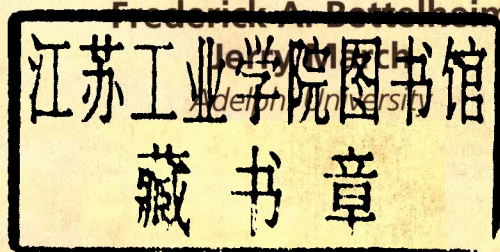 Frederick A. Bettelheim
Jerry March
Adelphi University
江苏工业学院图书馆
藏书章